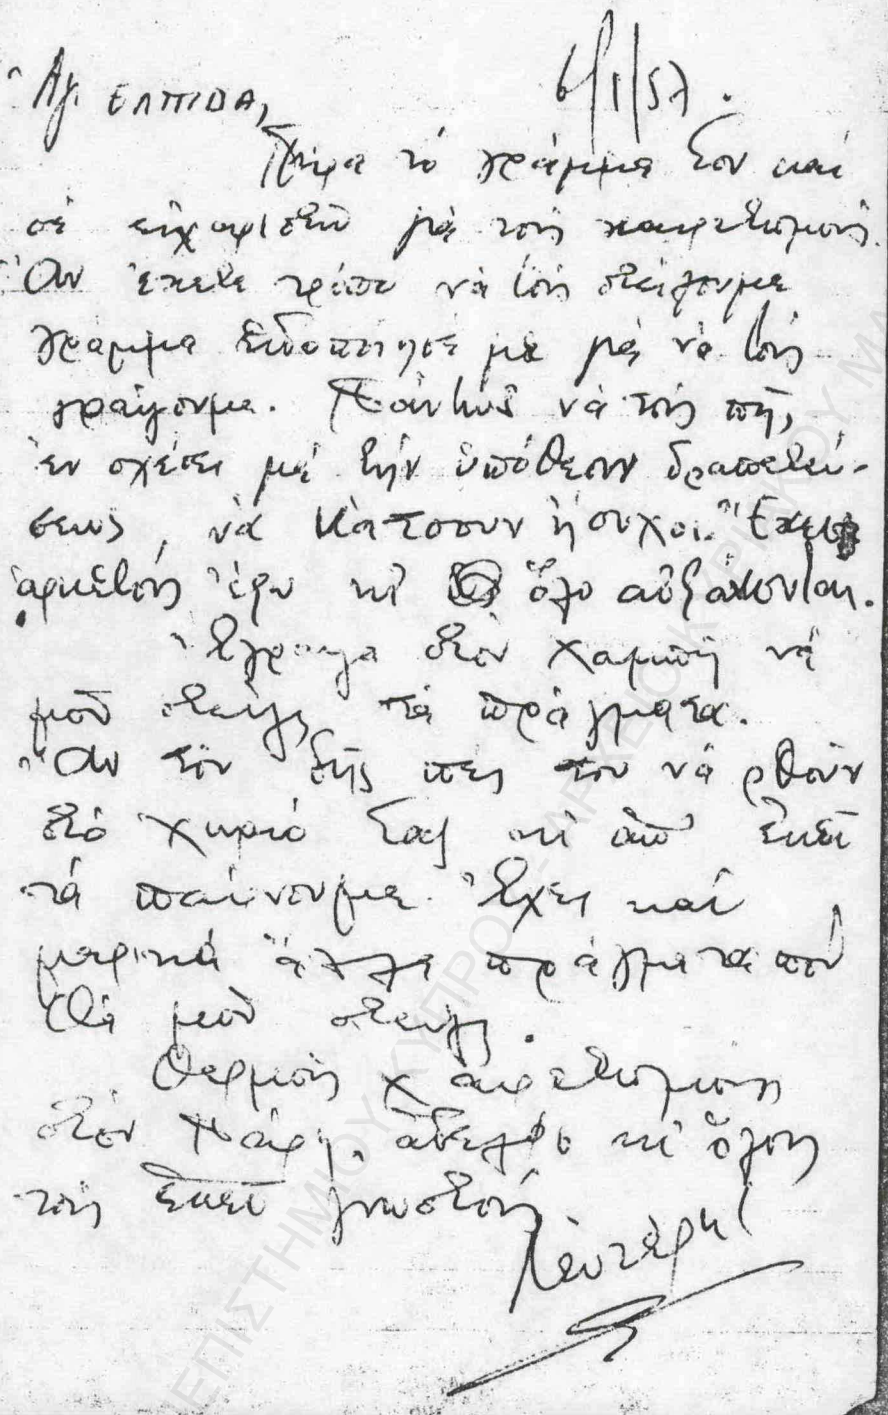 Ἀγ. ΕΛΠΙΔΑ, 6/1/57.
Πῆρα τό γράμμα σου καί
σέ εὐχαριστῶ γιά τούς χαιρετισμούς.
Ἄν ἔχετε τρόπο νά τούς στείλουμε
γράμμα εἰδοποίησέ με γιά νά τούς
γράψουμε. Πάντως νά τούς πῇς,
ἐν σχέσει μέ τήν ὑπόθεσιν δραπετεύ-
σεως, νά κάτσουν ἥσυχοι. Ἔχει
ἀρκετούς ἔξω κι ὅλο αὐξάνονται.
Ἔγραψα στόν Χαμπῆ νά
μοῦ στείλῃ τά πράγματα.
Ἄν τόν δῇς πές του νά ρθοῦν
στό χωριό σας κι ἀπ' ἐκεῖ
τά παίρνουμε. Ἔχει καί
μερικά ἄλλα πράγματα πού
θά μοῦ στείλῃ.
Θερμούς χαιρετισμούς
στόν Χάρη, ἀδελφό κι ὅλους
τούς ἐκεῖ γνωστούς
Λευτέρης
ΕΠΙΣΤΗΜΙΟΥ ΚΥΠΡΟΥ - ΑΡΧΕΙΟ ΚΥΡΙΑΚΟΥ ΜΑ